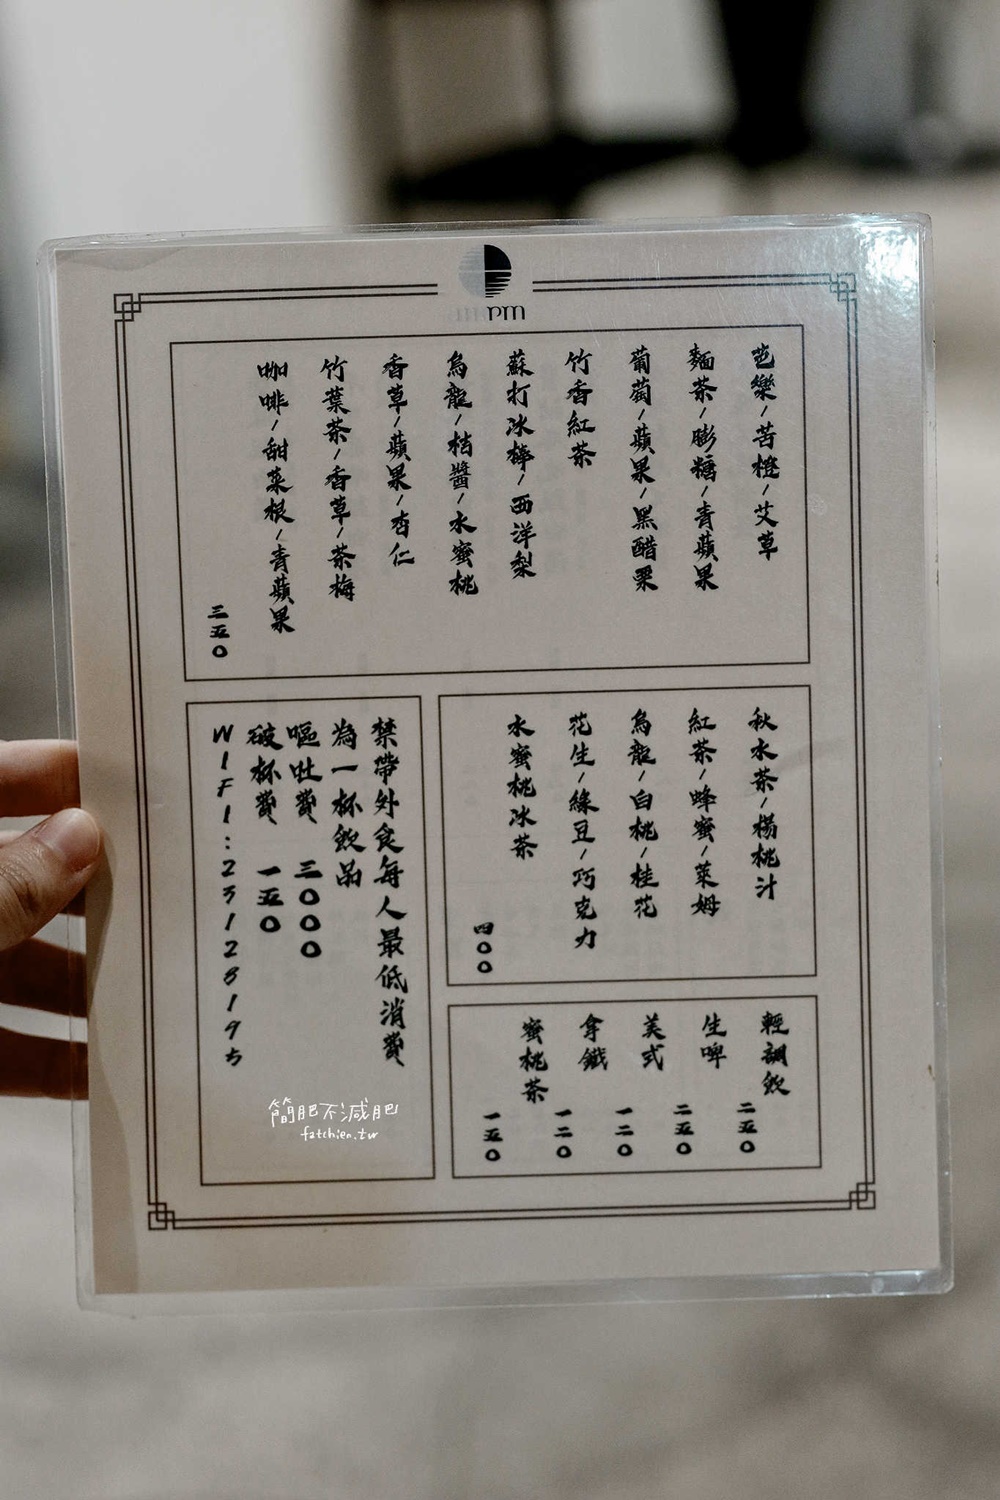 rm
芭樂/苦橙/艾草
麵茶/膨糖/青蘋果
葡萄/蘋果/黑醋栗
竹香紅茶
蘇打冰棒/西洋梨
烏龍/桔醬/水蜜桃
香草/蘋果/杏仁
竹葉茶/香草/茶梅
咖啡/甜菜根/青蘋果
三五〇
秋水茶/楊桃汁
紅茶/蜂蜜/萊姆
烏龍/白桃/桂花
花生/綠豆/巧克力
水蜜桃冰茶
四〇〇
輕調飲 二五〇
生啤 二五〇
美式 一二〇
拿鐵 一二〇
蜜桃茶 一五〇
禁帶外食每人最低消費
為一杯飲品
嘔吐費 三〇〇〇
破杯費 一五〇
WIFI:23128195
簡肥不減肥
fatchien.tw